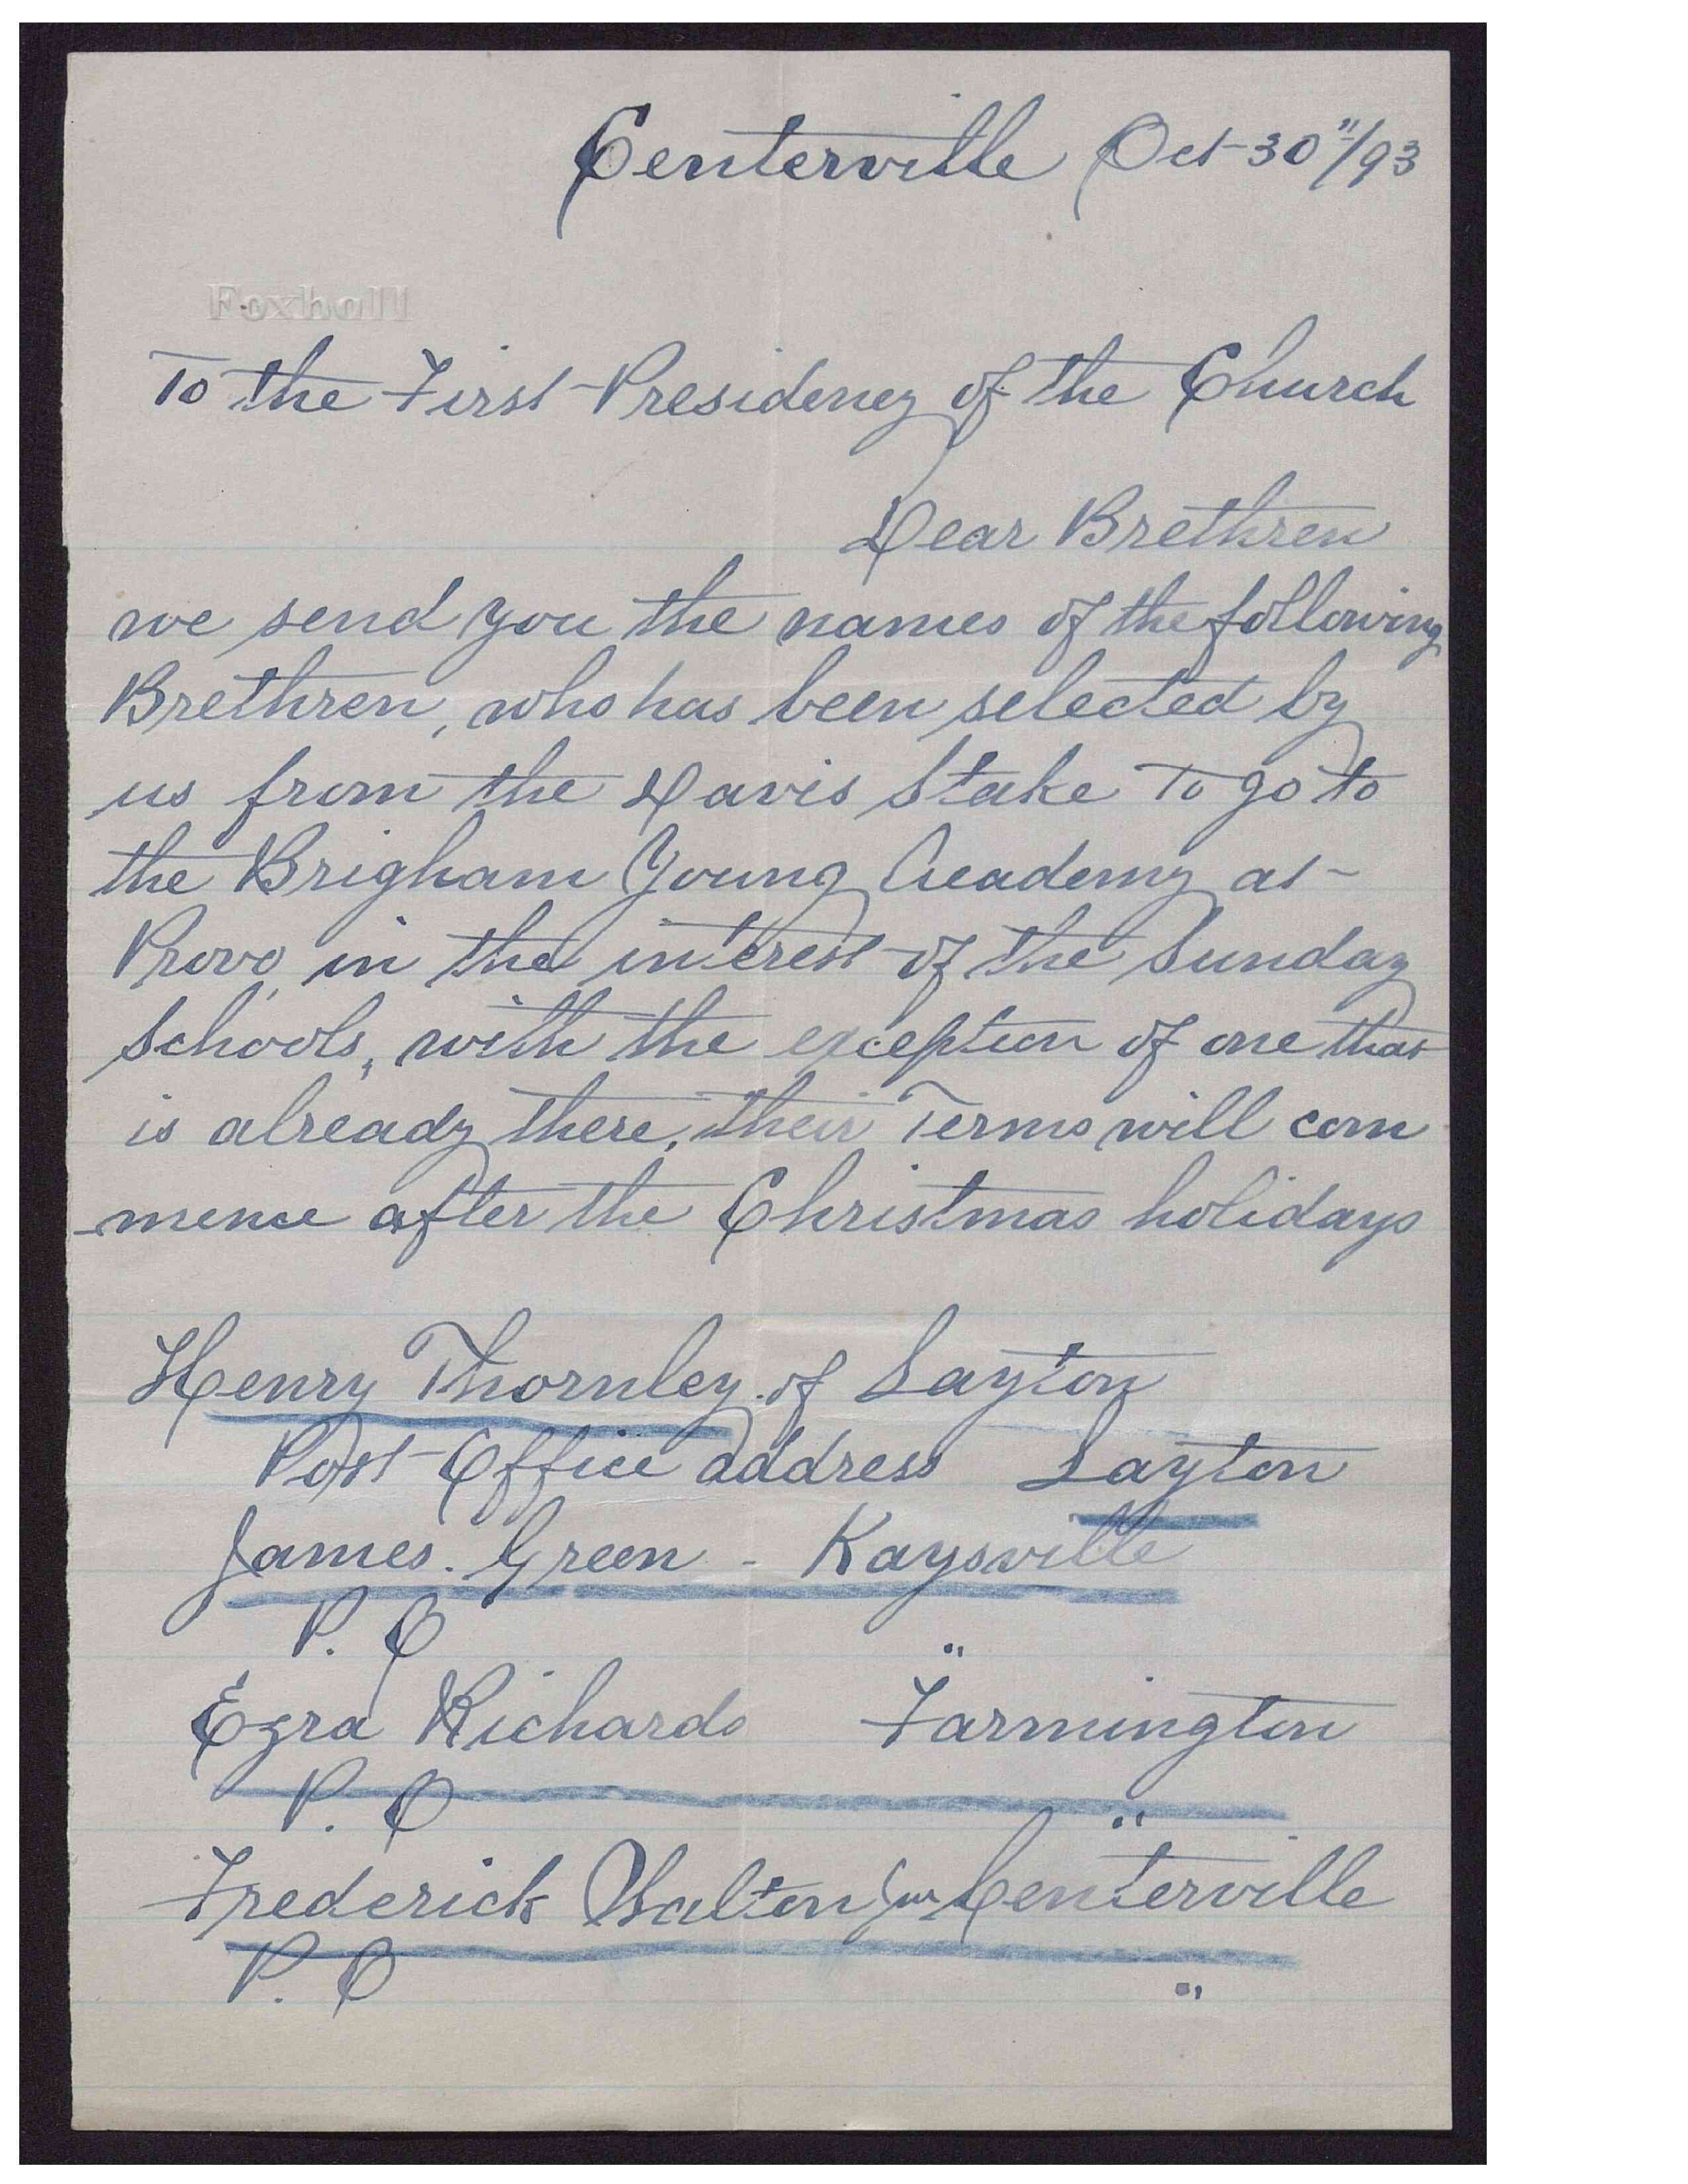 Centerville Oct 30"/93
Foxhall
To the First Presidency of the Church
Dear Brethren
we send you the names of the following
Brethren, who has been selected by
us from the Davis Stake To go to
the Brigham Young Academy at
Provo, in the interest of the Sunday
Schools, with the exception of one that
is already there, their Terms will com
-mence after the Christmas holidays
Henry Thornley of Layton
Post Office address Layton
James. Green - Kaysville
P. O "
Ezra Richards Farmington
P. O "
Frederick Walton Jur Centerville
P. O "